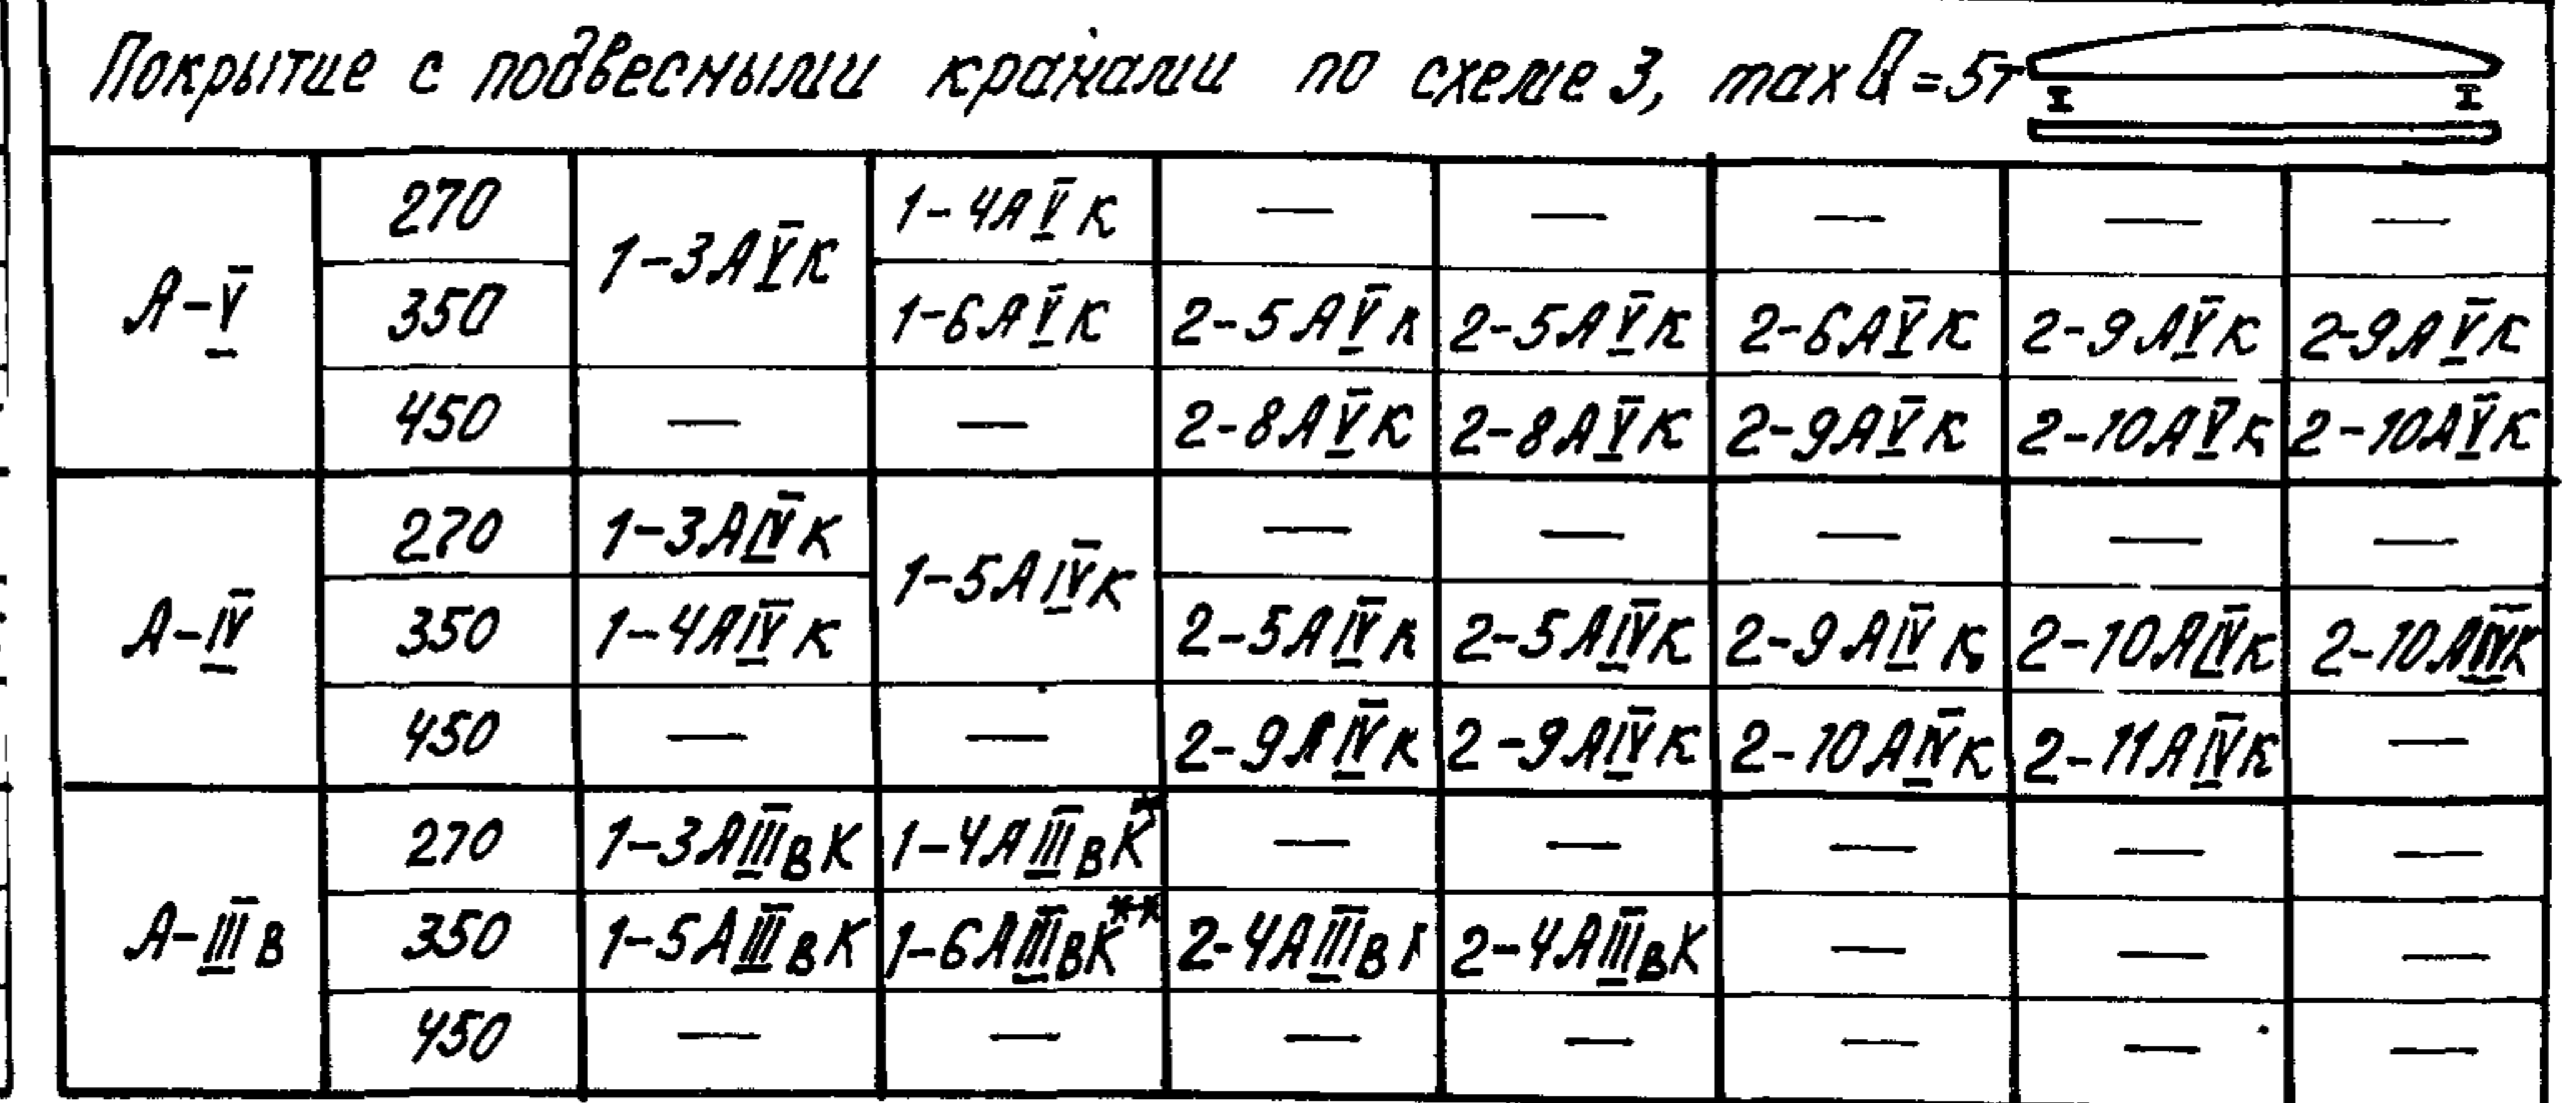 Покрытие с подвесными кранами по схеме 3, max Q = 5т
270 1-4АVк — — — — —
А-V 1-3АVк
350 1-6АVк 2-5АVк 2-5АVк 2-6АVк 2-9АVк 2-9АVк
450 — — 2-8АVк 2-8АVк 2-9АVк 2-10АVк 2-10АVк
270 1-3АIVк — — — — —
А-IV 1-5АIVк
350 1-4АIVк 2-5АIVк 2-5АIVк 2-9АIVк 2-10АIVк 2-10АIVк
450 — — 2-9АIVк 2-9АIVк 2-10АIVк 2-11АIVк —
270 1-3АIIIвК 1-4АIIIвК* — — — — —
А-IIIв 350 1-5АIIIвК 1-6АIIIвК** 2-4АIIIвК 2-4АIIIвК — — —
450 — — — — — — —